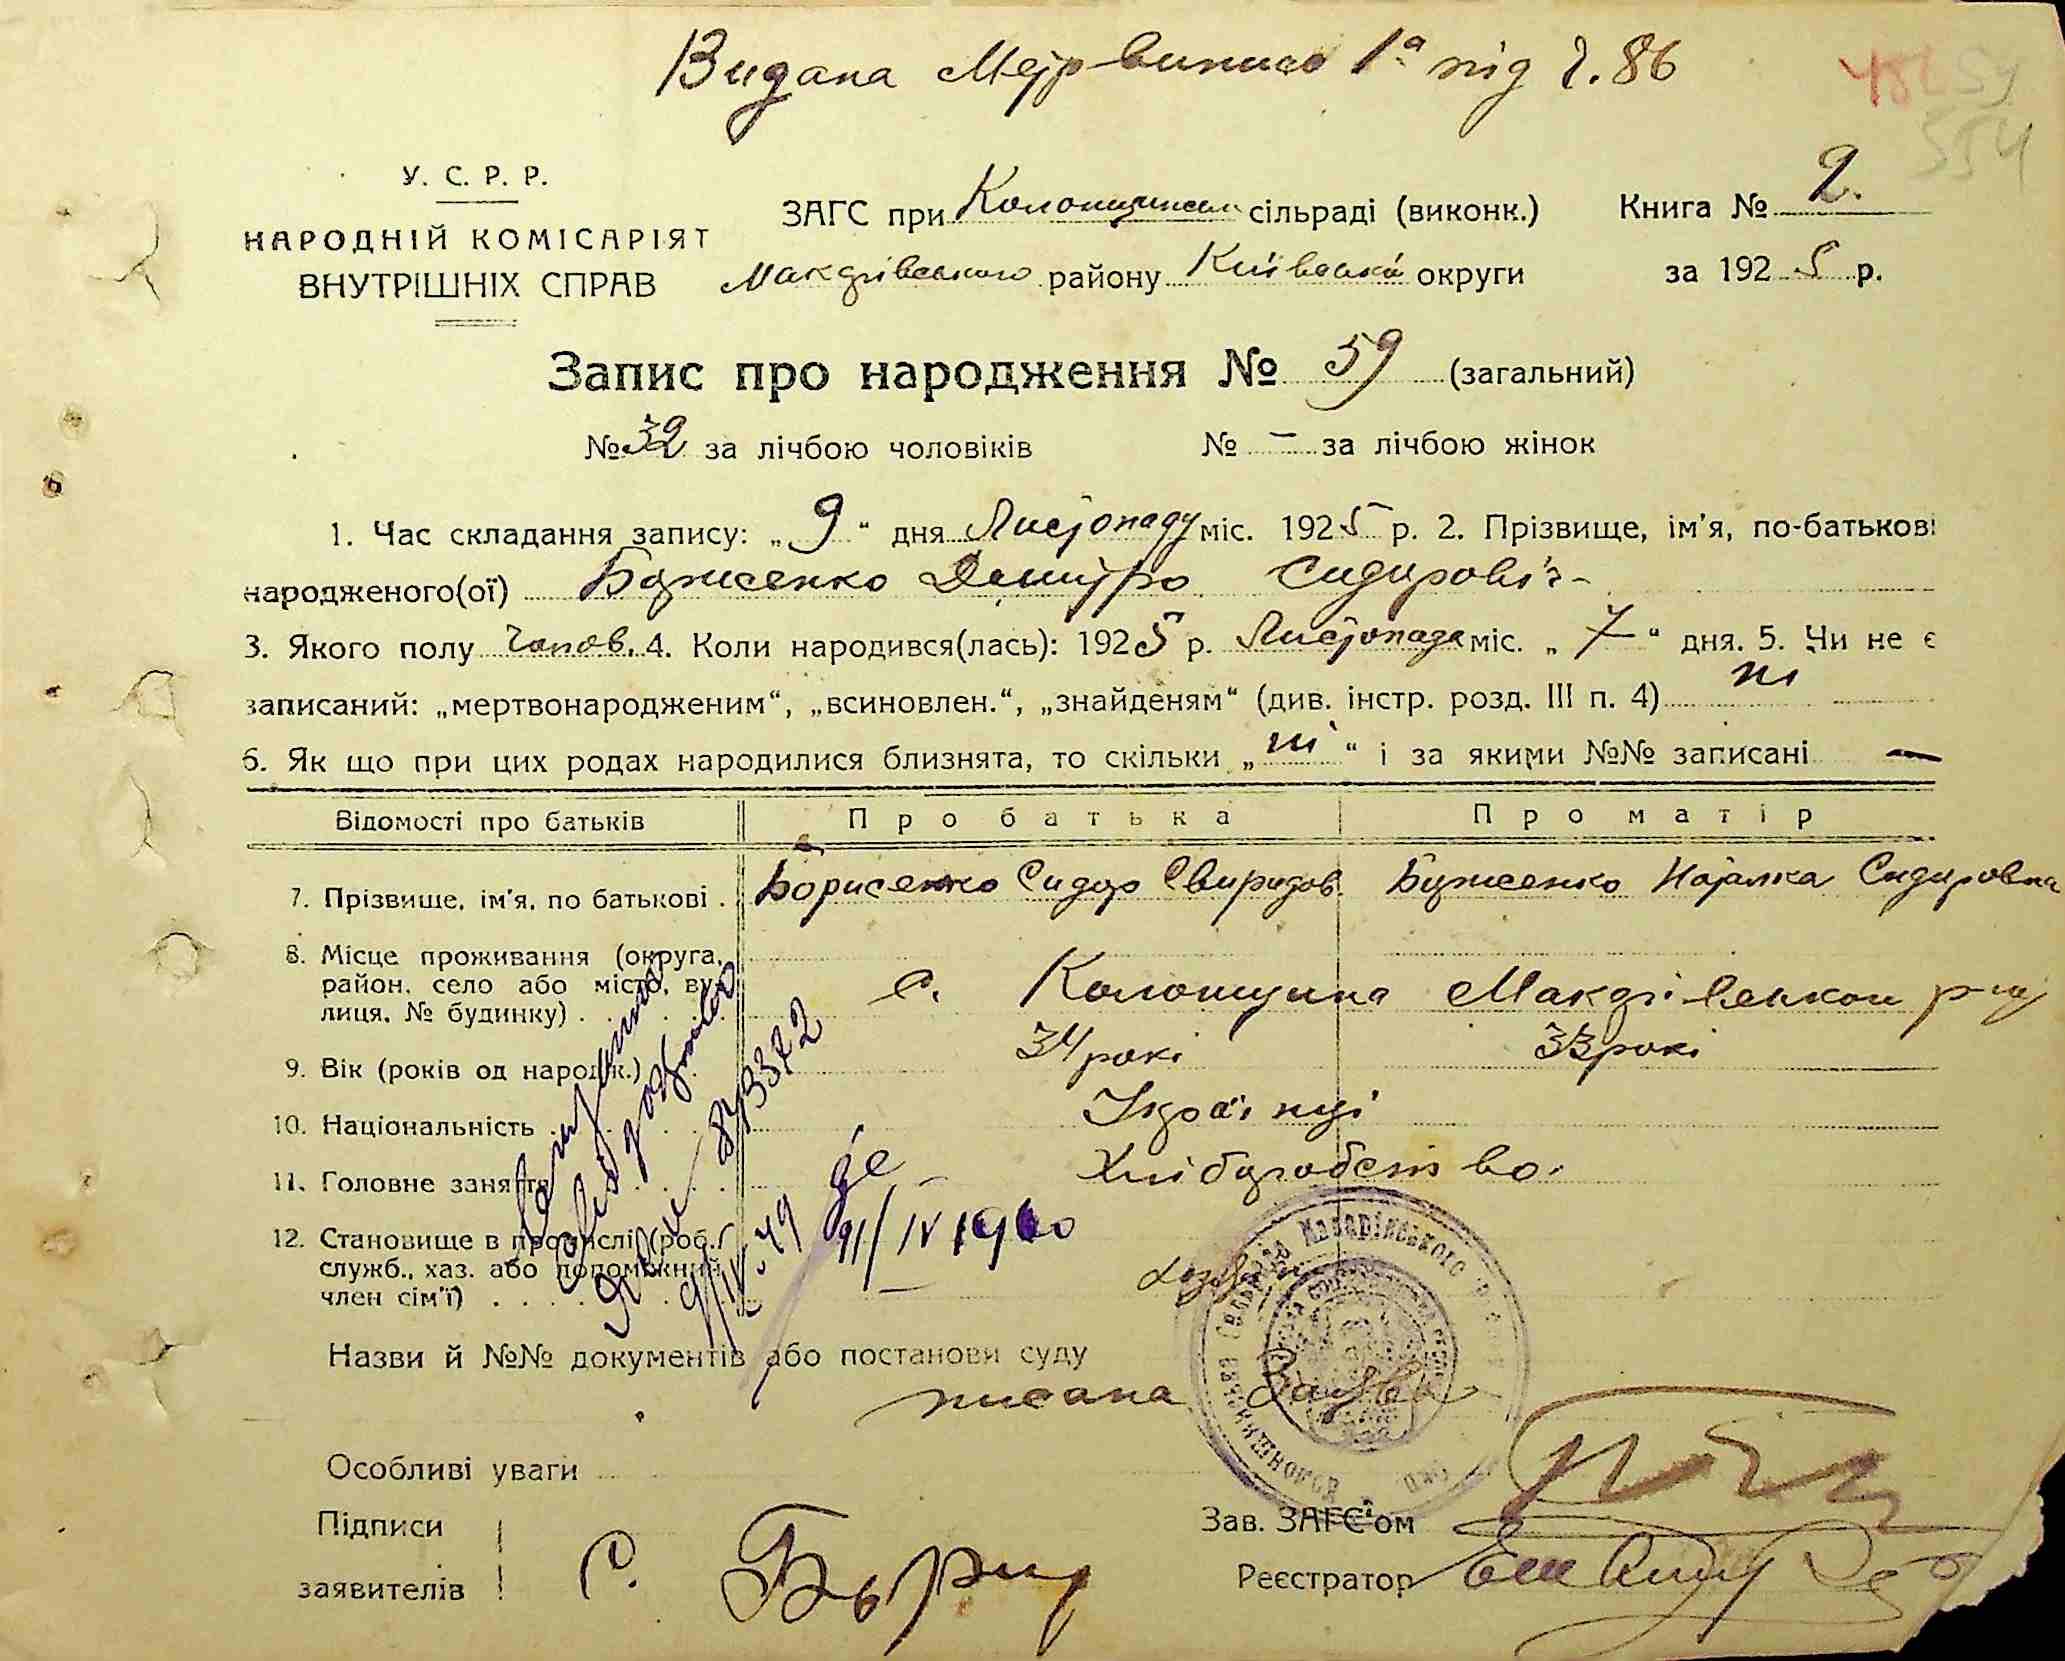 Видана Метр виписа 1ª під г. 86
У. С. Р. Р.
НАРОДНІЙ КОМІСАРІЯТ
ВНУТРІШНІХ СПРАВ
ЗАГС при Колонщинськ сільраді (виконк.)
Макарівського району Київської округи
Книга № 2.
за 1925 р.
Запис про народження № 59 (загальний)
№ 32 за лічбою чоловіків № – за лічбою жінок
1. Час складання запису: „9“ дня Листопаду міс. 1925 р. 2. Прізвище, ім'я, по-батькові
народженого(ої) Борисенко Дмитро Сидорович
3. Якого полу Чолов. 4. Коли народився(лась): 1925 р. Листопада міс. „7“ дня. 5. Чи не є
записаний: „мертвонародженим“, „всиновлен.“, „знайденям“ (див. інстр. розд. III п. 4) ні
6. Як що при цих родах народилися близнята, то скільки „ні“ і за якими №№ записані —
Відомості про батьків Про батька Про матір
7. Прізвище, ім'я, по батькові . Борисенко Сидор Свиридов. Борисенко Наталка Сидоровна
8. Місце проживання (округа,
район, село або місто, ву-
лиця, № будинку) . с. Колонщина Макарівського р-ну
9. Вік (років од народж.) 34 рокі 33 рокі
10. Національність Українці
11. Головне заняття Хліборобство.
12. Становище в промислі (роб.,
служб., хаз. або допоміжний
член сім'ї)
9/IV 1960
Назви й №№ документів або постанови суду
писана Заява
Особливі уваги
Підписи
заявителів С. Борис
Зав. ЗАГС'ом
Реєстратор